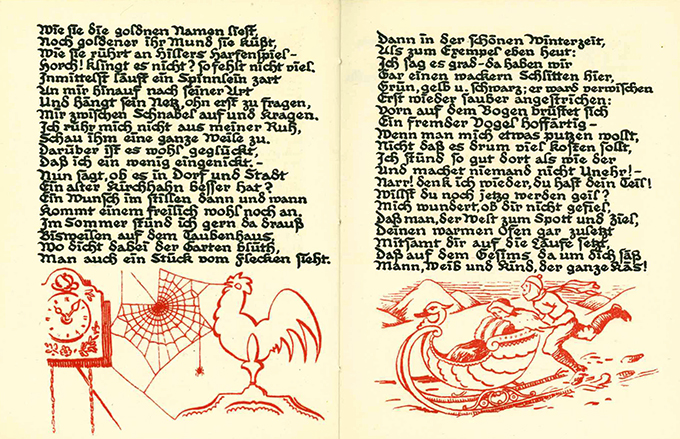 Wie sie die goldnen Namen liest,
Noch goldener ihr Mund sie küßt,
Wie sie rührt an Hillers Harfenspiel –
Horch! klingt es nicht? so fehlt nicht viel.
Inmittelst läuft ein Spinnlein zart
An mir hinauf nach seiner Art
Und hängt sein Netz, ohn erst zu fragen,
Mir zwischen Schnabel auf und Kragen.
Ich rühr mich nicht aus meiner Ruh,
Schau ihm eine ganze Weile zu.
Darüber ist es wohl geglückt,
Daß ich ein wenig eingenickt. –
Nun sagt, ob es in Dorf und Stadt
Ein alter Kirchhahn besser hat?
Ein Wunsch im stillen dann und wann
Kommt einem freilich wohl noch an.
Im Sommer stünd ich gern da drauß
Bisweilen auf dem Taubenhaus,
Wo dicht dabei der Garten blüht,
Man auch ein Stück vom Flecken sieht.
Dann in der schönen Winterzeit,
Als zum Exempel eben heut:
Ich sag es grad – da haben wir
Gar einen wackern Schlitten hier,
Grün, gelb u. schwarz; er ward verwischen
Erst wieder sauber angestrichen:
Vorn auf dem Bogen brüstet sich
Ein fremder Vogel hoffärtig –
Wenn man mich etwas putzen wollt,
Nicht daß es drum viel kosten sollt,
Ich stünd so gut dort als wie der
Und machet niemand nicht Unehr! –
Narr! denk ich wieder, du hast dein Teil!
Willst du noch jetzo werden geil?
Mich wundert, ob dir nicht gefiel,
Daß man, der Welt zum Spott und Ziel,
Deinen warmen Ofen gar zuletzt
Mitsamt dir auf die Läufe setzt,
Daß auf dem Gesims da um dich säß
Mann, Weib und Kind, der ganze Käs!